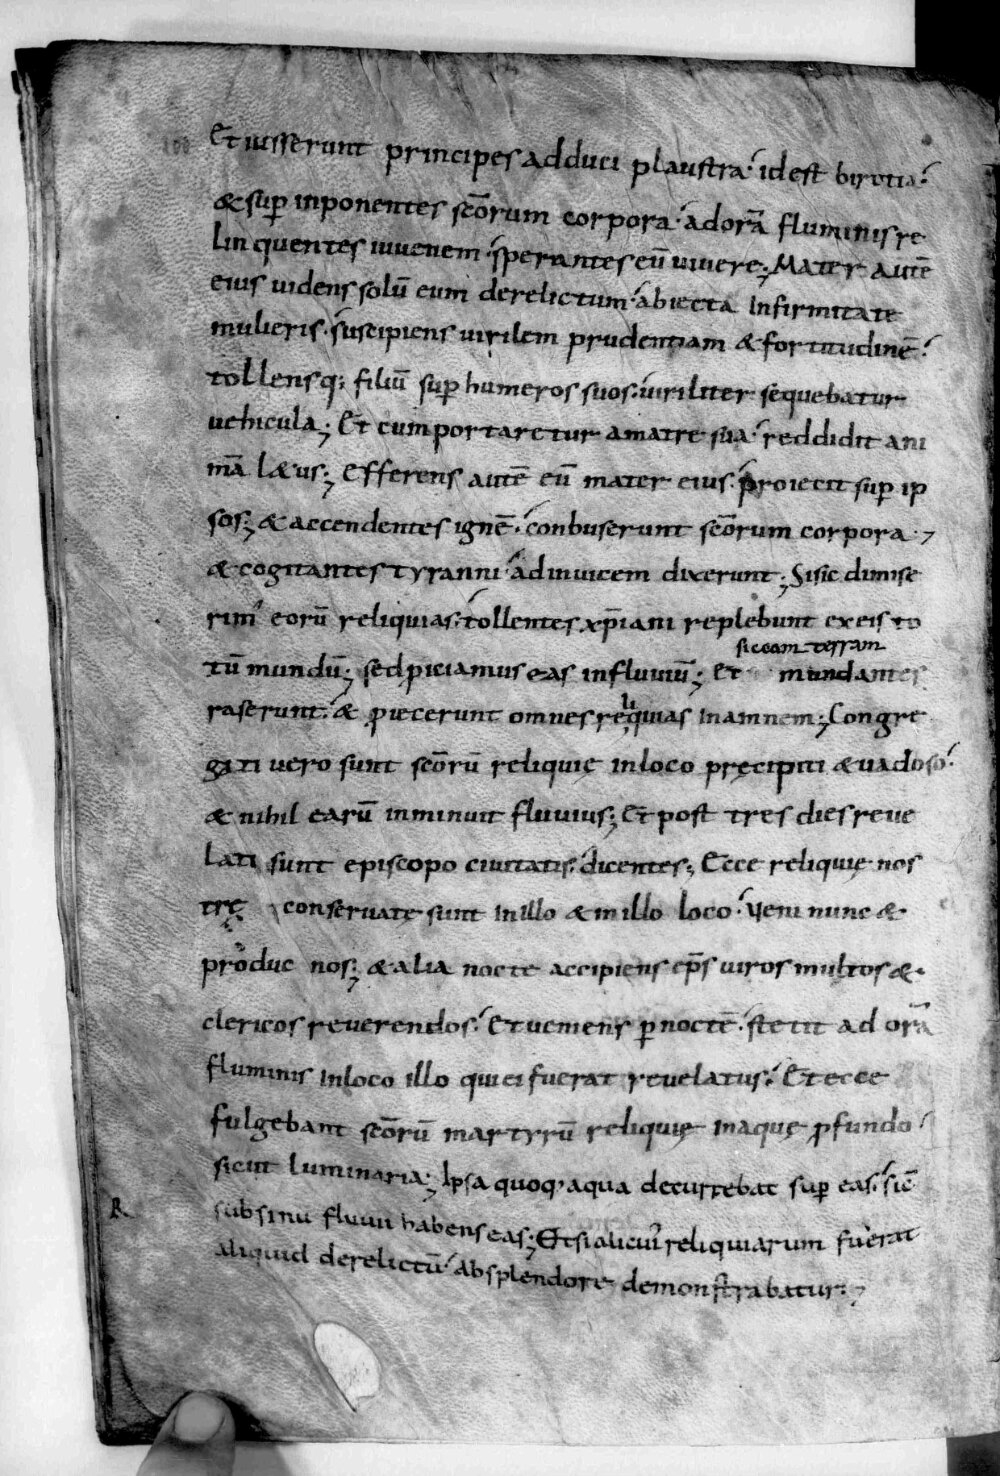 Et iusserunt principes adduci plaustra. id est birotia.
& sup̄ inponentes scōrum corpora. ad orā fluminis re
linquentes iuuenem. sperantes eū uiuere; Mater autē
eius uidens solū eum derelictum. abiecta infirmitate
mulieris. suscipiens uirilem prudentiam & fortitudinē.
tollensq; filiū sup̄ humeros suos. uiriliter sequebatur
uehicula; Et cum portaretur a matre sua. reddidit ani
mā lætus; Efferens autē eū mater eius. proiecit sup̄ ip
sos; & accendentes ignē. conbuserunt scōrum corpora.
& cogitantes tyranni. adinuicem dixerunt; Si sic dimise
rim' eorū reliquias. tollentes xp̄iani replebunt ex eis to
tū mundū; sed piciamus eas in fluuiū; Et mundantes
siccam terram
raserunt. & piecerunt omnes reliquias in amnem; Congre
gati uero sunt scōrū reliquię in loco pręcipiti & uadoso.
& nihil earū inminuit fluuius; Et post tres dies reue
lati sunt episcopo ciuitatis. dicentes; Ecce reliquię nos
trę conseruatę sunt in illo & in illo loco. Veni nunc &
produc nos; & alia nocte accipiens ep̄s uiros multos &
clericos reuerendos. Et ueniens p̱ noctē. stetit ad orā
fluminis in loco illo qui ei fuerat reuelatus. Et ecce
fulgebant scōrū martyrū reliquię in aquę pfundo
sicut luminaria; Ipsa quoq; aqua decurrebat sup̄ eas. sic̄
sub sinu fluuii habens eas; Et si alicubi reliquiarum fuerat
R
aliquid derelictū. ab splendore demonstrabatur;